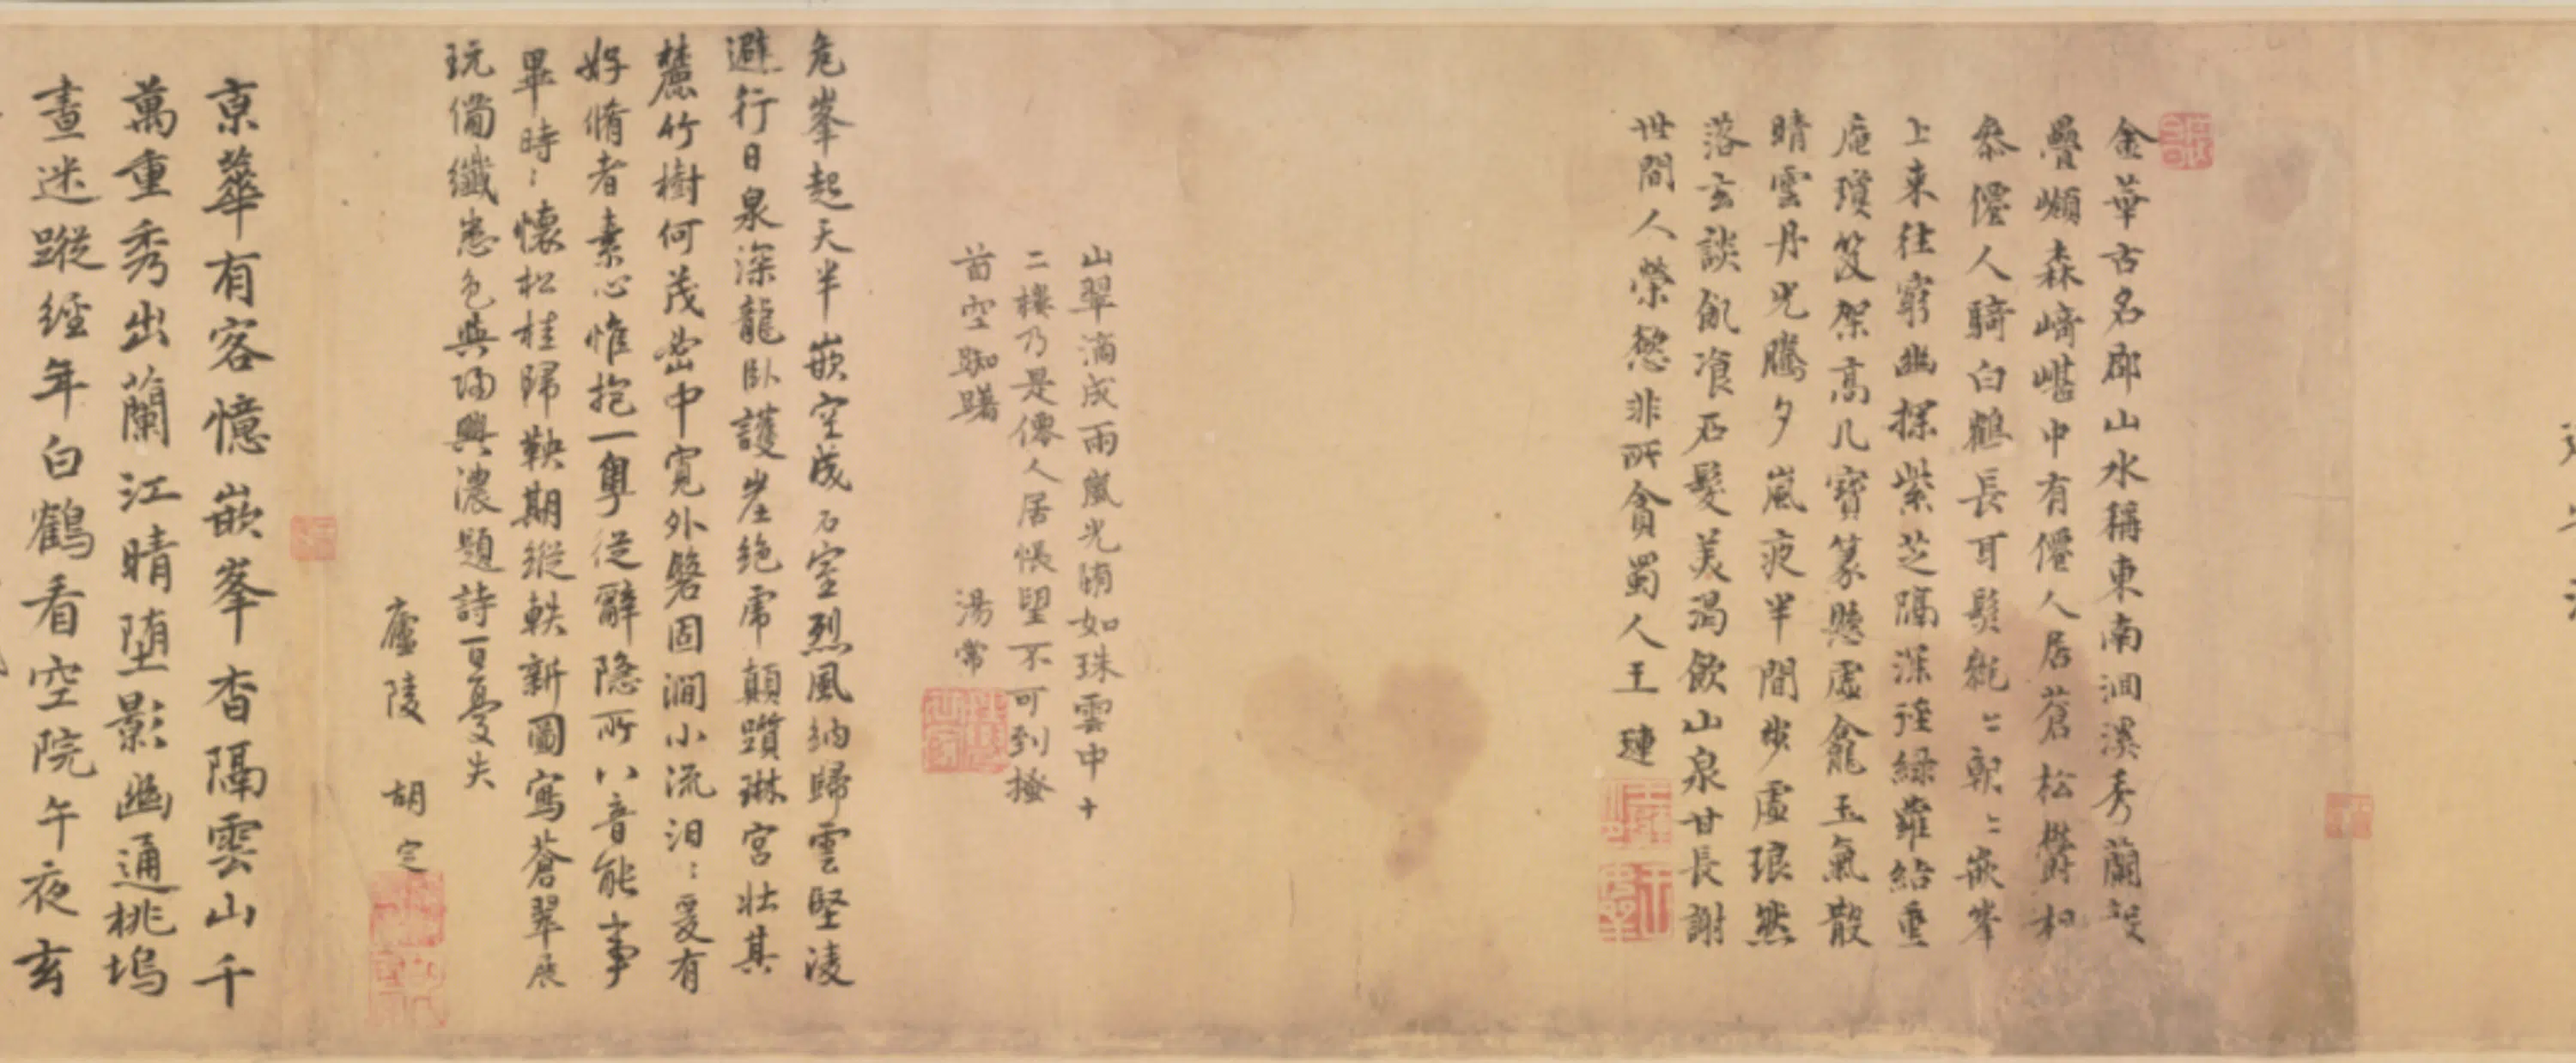 金華古名郡山水稱東南洄溪秀蘭
疊巘森崎嶬中有僊人居蒼松鬱相
叅僊人騎白鶴長耳髮毿〻朝〻嵌峯
上來往窮幽探紫芝隔深徑綠蘿結重
庵瓊笈架高几寶篆懸虛龕玉氣散
晴雲丹光騰夕嵐夜半閒步虛琅然
落玄談飢飡石髮美渴飲山泉甘長謝
世間人榮慾非所貪蜀人王璉
山翠滴成雨嵐光濇如珠雲中十
二樓乃是僊人居悵望不可到搔
首空踟躇
湯常
危峯起天半嵌空成石室烈風納歸雲堅凌
避行日泉深龍臥護崖絕虎顛躓琳宮壯其
麓竹樹何茂密中寬外磐固澗小流汩〻爰有
好脩者素心惟抱一粤從辭隱所八音能事
畢時〻懷松桂歸鞅期縱軼新圖寫蒼翠展
玩備纖悉色與酒興濃題詩百憂失
廬陵 胡定
京華有客憶嵌峯杳隔雲山千
萬重秀出蘭江晴墮影幽通桃塢
晝迷蹤經年白鶴看空院午夜玄